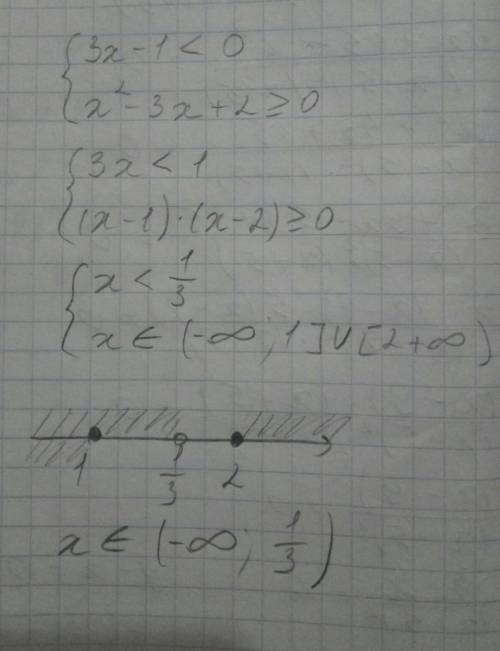 { 3x - 1 < 0
x² - 3x + 2 ≥ 0
{ 3x < 1
(x-1)·(x-2) ≥ 0
{ x < 1/3
x ∈ (-∞; 1] ∪ [2 +∞)
1 1/3 2
x ∈ (-∞; 1/3)